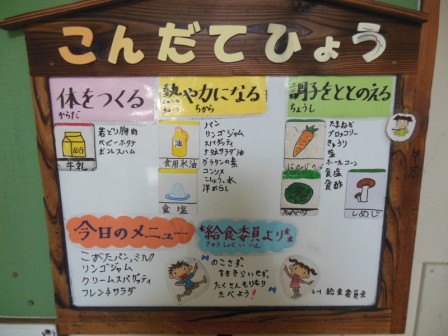 こんだてひょう
体をつくる
からだ
熱や力になる
ねつ ちから
調子をととのえる
ちょうし
若どり胸肉
ベビーホタテ
ボンレスハム
牛乳
パン
リンゴジャム
スパゲッティ
ナタネサラダ油
グラタンの素
コンソメ
こしょう、水
洋からし
食用米油
食塩
たまねぎ
ブロッコリー
きゅうり
塩
ホールコーン
食塩
食酢
にんじん
しめじ
今日のメニュー
こがたパン、ミルク
リンゴジャム
クリームスパゲッティ
フレンチサラダ
給食委員より
きゅうしょくいいん
のこさず、
すききらいせず、
たくさんもりもり
たべよう!
給食委員